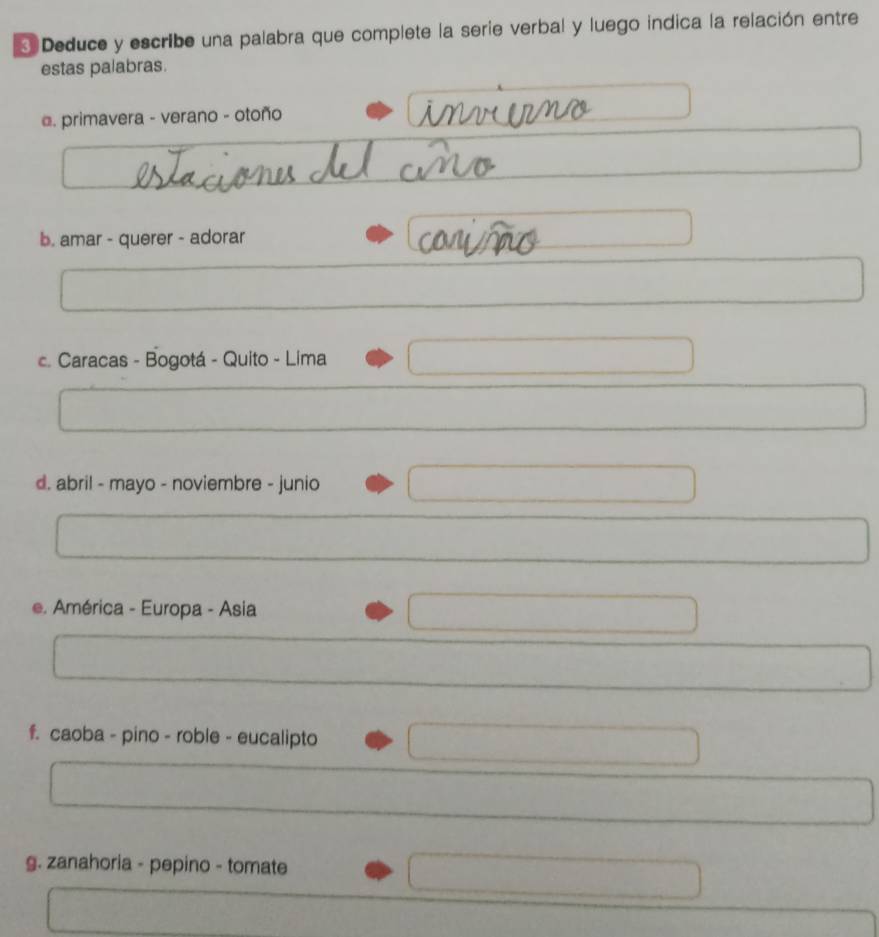 3 Deduce y escribe una palabra que complete la serie verbal y luego indica la relación entre
estas palabras.
a. primavera - verano - otoño
invierno
estaciones del año
b. amar - querer - adorar
cariño
c. Caracas - Bogotá - Quito - Lima
d. abril - mayo - noviembre - junio
e. América - Europa - Asia
f. caoba - pino - roble - eucalipto
g. zanahoria - pepino - tomate